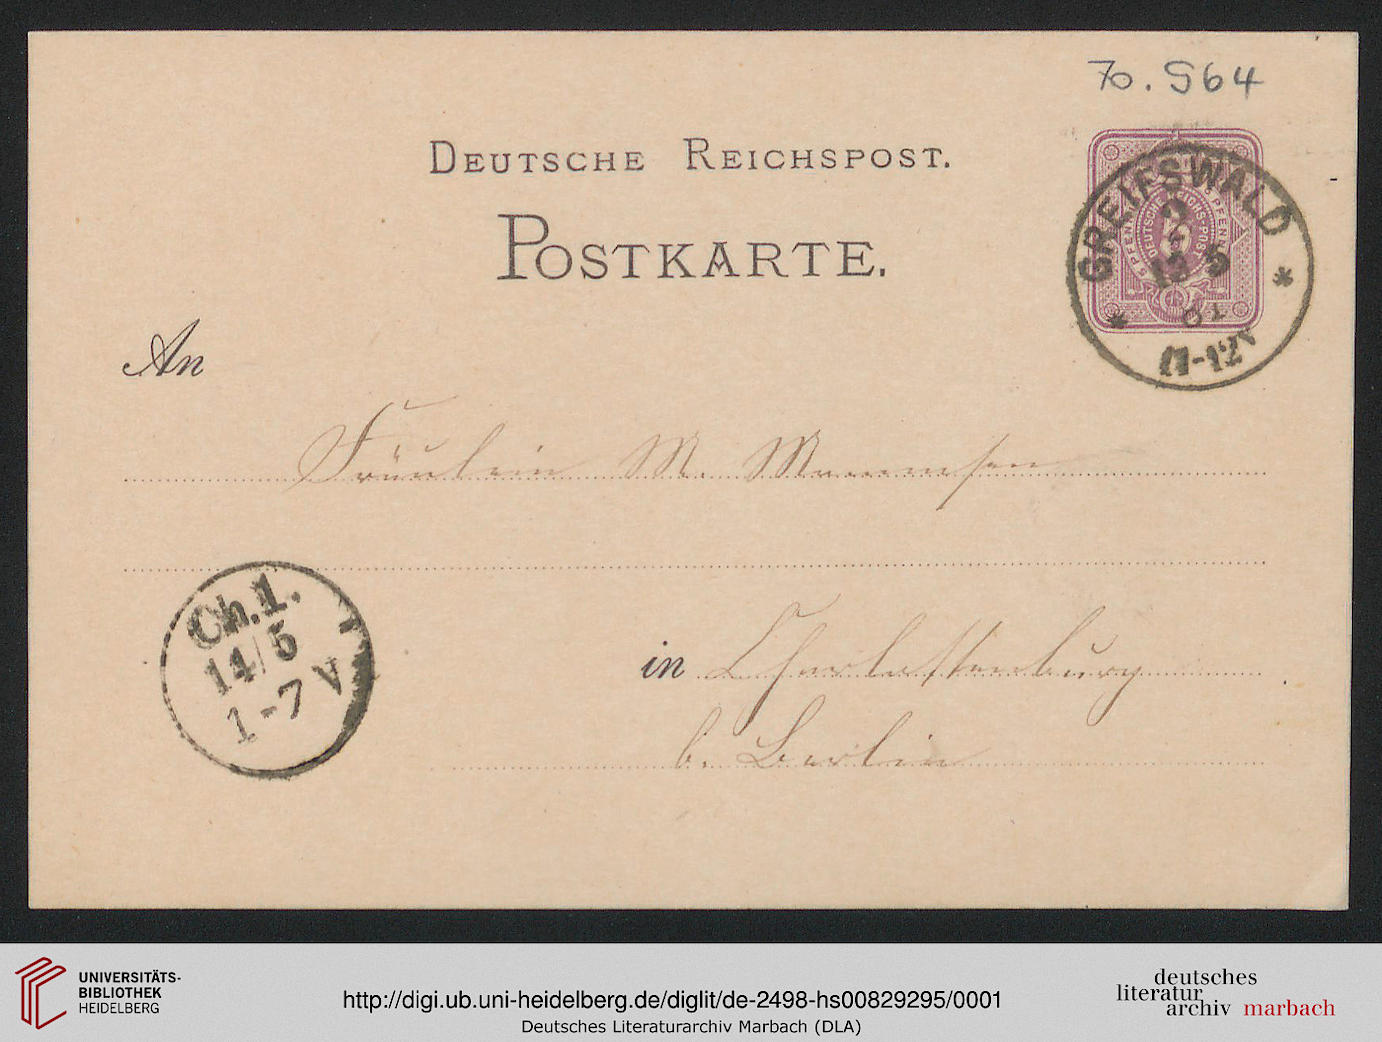 70.564
DEUTSCHE REICHSPOST.
POSTKARTE.
5 PFENNIG 5 PFENNIG
DEUTSCHE REICHS-POST
GREIFSWALD
13 5
81
11-12V
An
Fräulein M. Mommsen
in Charlottenburg
b. Berlin
Ch.1.
14/5
1-7 V
UNIVERSITÄTS-
BIBLIOTHEK
HEIDELBERG
http://digi.ub.uni-heidelberg.de/diglit/de-2498-hs00829295/0001
Deutsches Literaturarchiv Marbach (DLA)
deutsches
literatur
archiv marbach